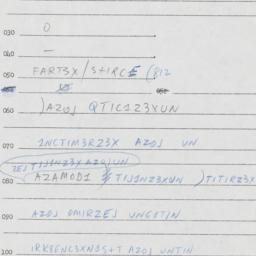 030 0
040 —
050 FART3X/StIRCE (812
060 )AZOJ QTIC1Z3XUN
070 INCTIM3RZ3X AZOJ UN
TIJ1NZ3XAZOJUN
080 AZAMOD1 TIJ1NZ3XUN )TITIRZ3X
090 AZOJ OMIRZEJ UNGOTIN
100 IRKSENC3XNDS+T AZOJ UNTIN